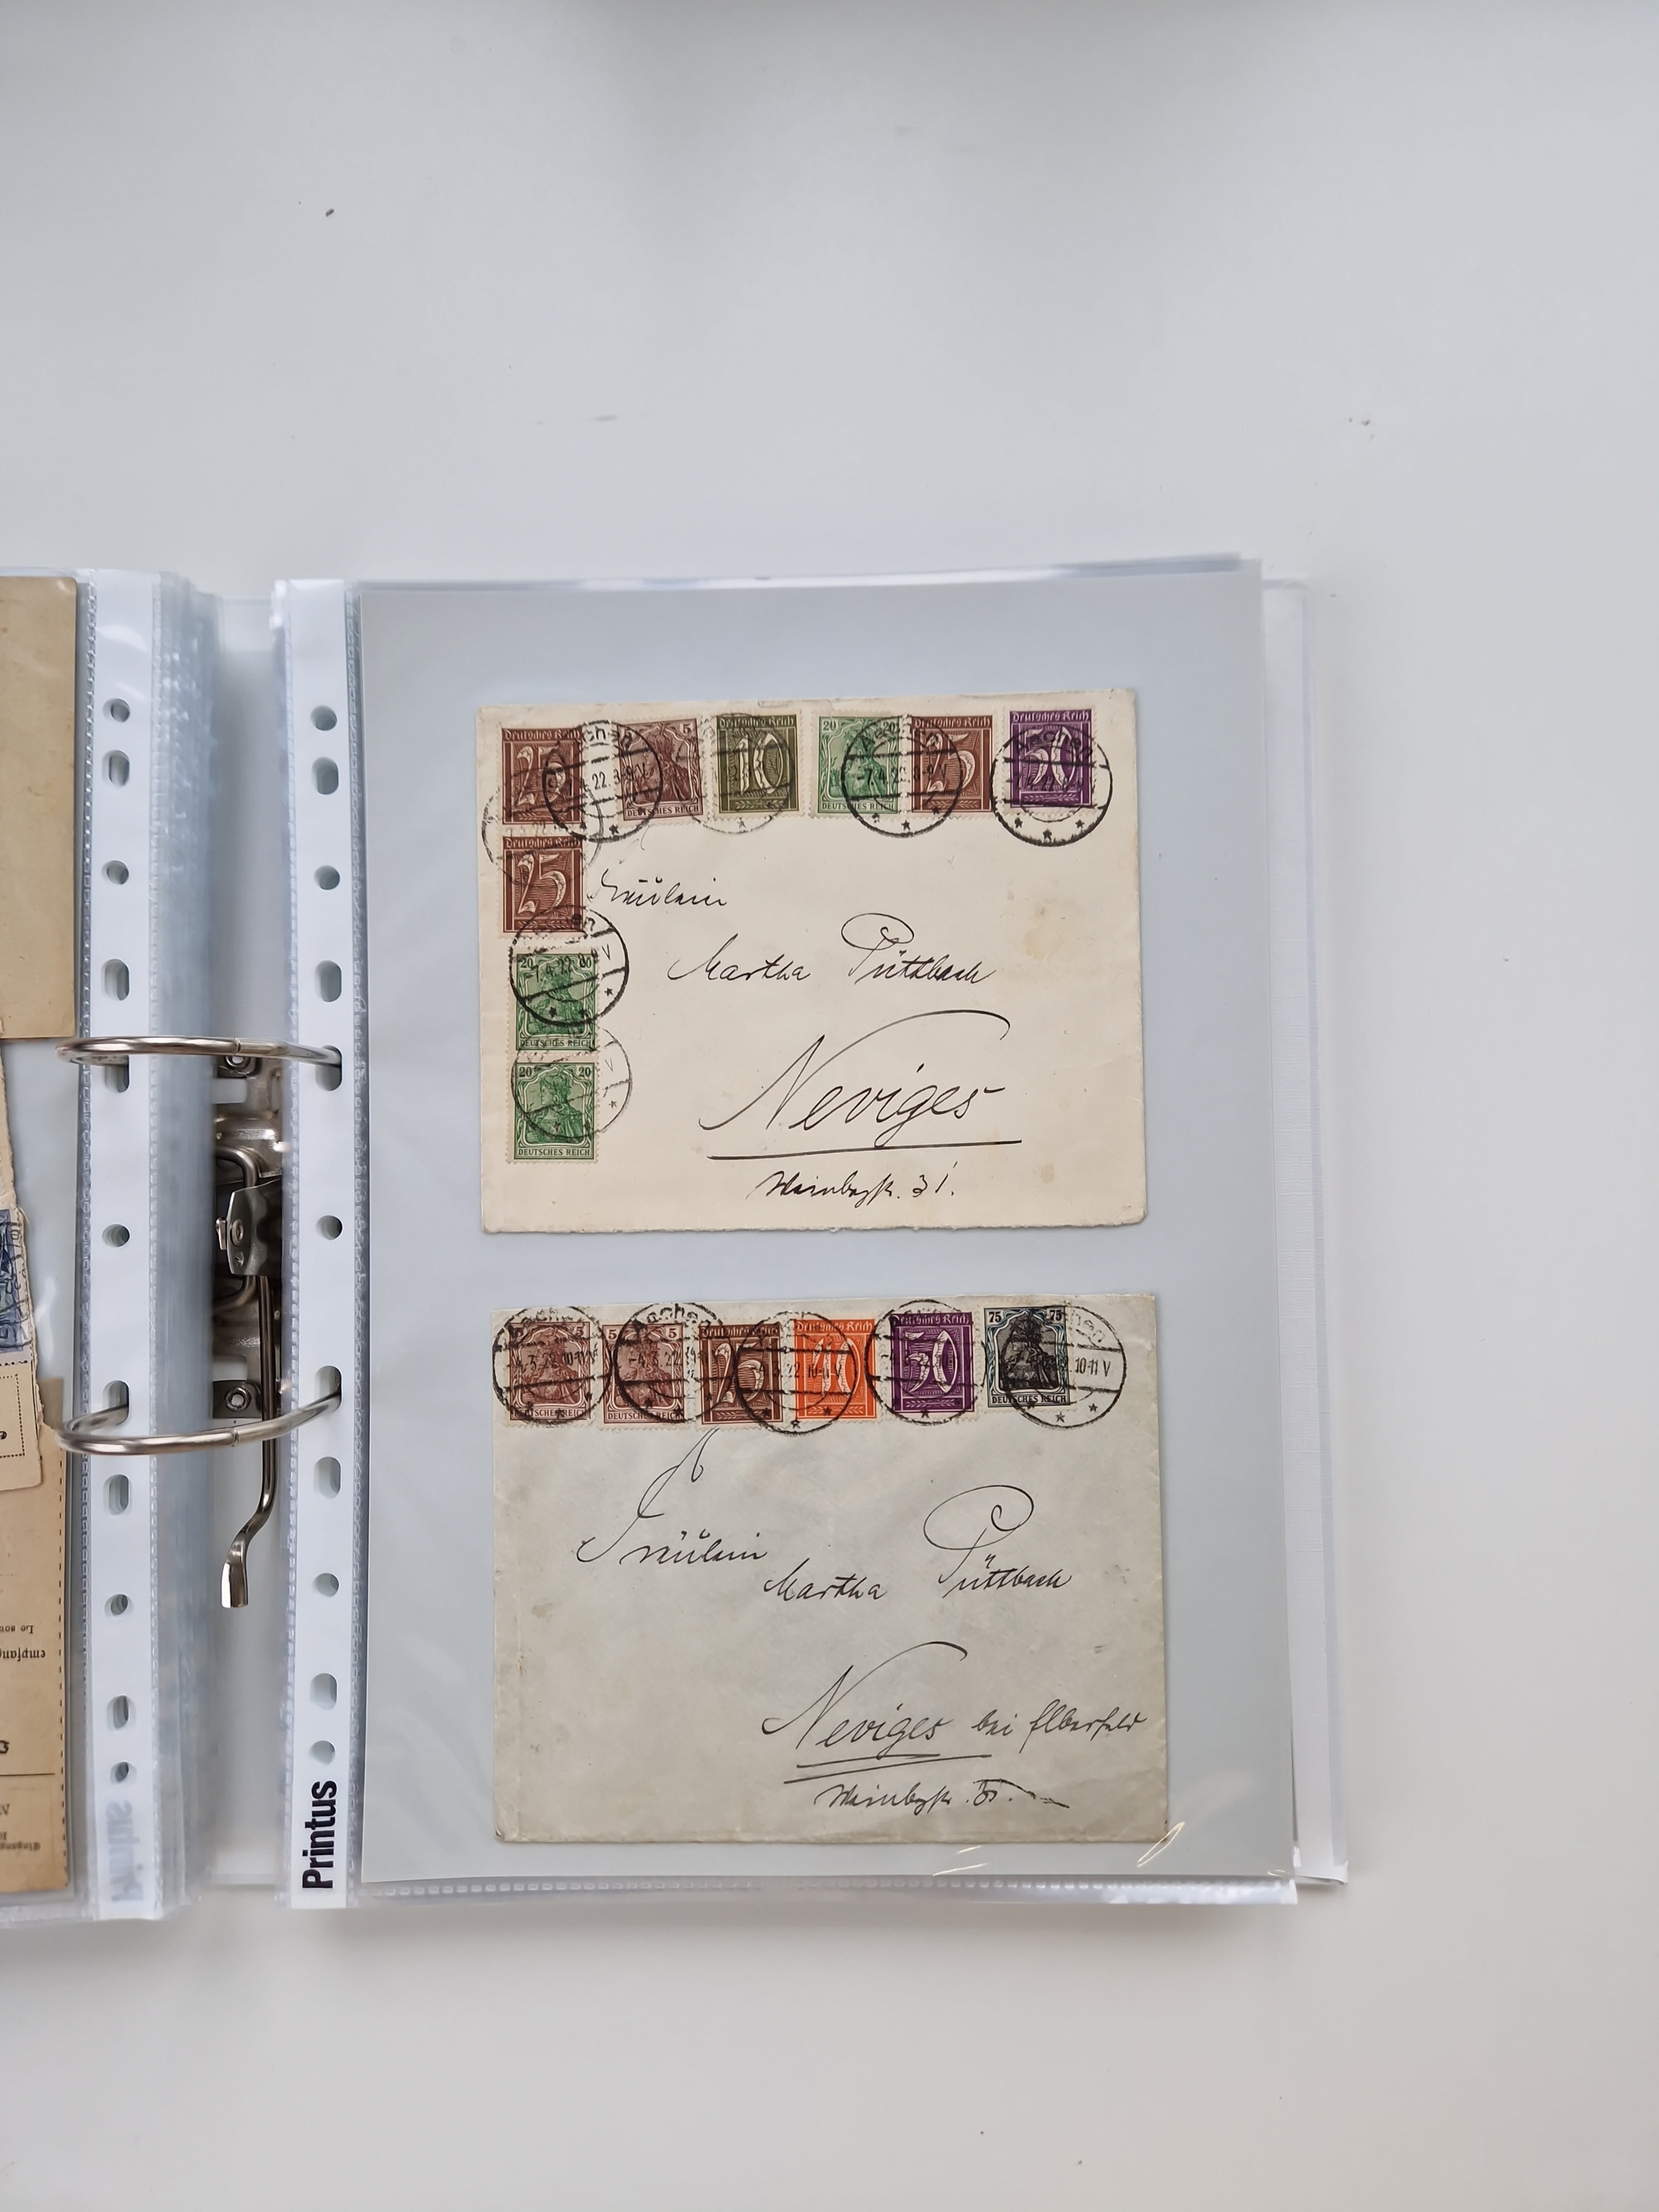 Deutsches Reich
25
5
DEUTSCHES REICH
Deutsches Reich
10
20 20
DEUTSCHES REICH
Deutsches Reich
25
Deutsches Reich
50
Aachen
-7.4.22 8-9 V
Deutsches Reich
25
20
DEUTSCHES REICH
20 20
DEUTSCHES REICH
Fräulein
Martha Püttbach
Neviges
31.
Aachen
-4.3.22.10-11 V
5
DEUTSCHES REICH
5 5
DEUTSCHES REICH
Deutsches Reich
25
Deutsches Reich
40
Deutsches Reich
50
75 75
DEUTSCHES REICH
Fräulein
Martha Püttbach
Neviges bei Elberfeld
Printus
Le sou
empfang